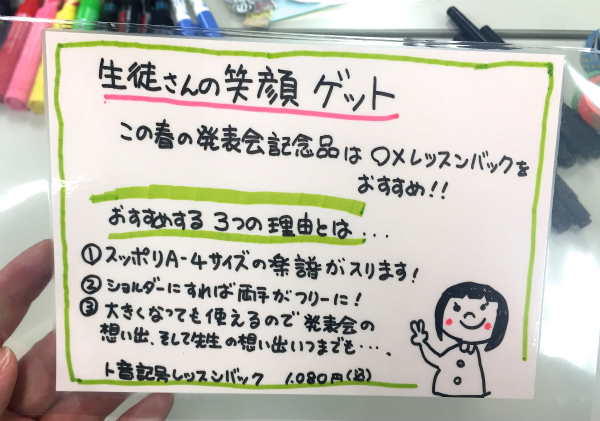 生徒さんの笑顔 ゲット
この春の発表会記念品は 〇×レッスンバックを
おすすめ!!
おすすめする 3つの理由とは...
① スッポリA-4サイズの楽譜が入ります!
② ショルダーにすれば両手がフリーに!
③ 大きくなっても使えるので発表会の
想い出、そして先生の想い出いつまでも・・・、
ト音記号レッスンバック 1,080円(込)